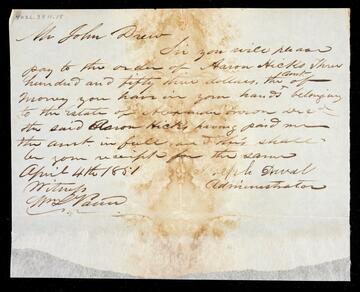 4026.3811.15
Mr John Drew
Sir you will please
pay to the order of Aaron Hicks three
hundred and fifty three dollars, the amt of
money you have in your hands belonging
to the estate of Alexander decd
the said Aaron Hicks having paid me
the amt in full and this shall
be your receipt for the same
April 4th 1851 Joseph Duval
Witness Administrator
Wm L